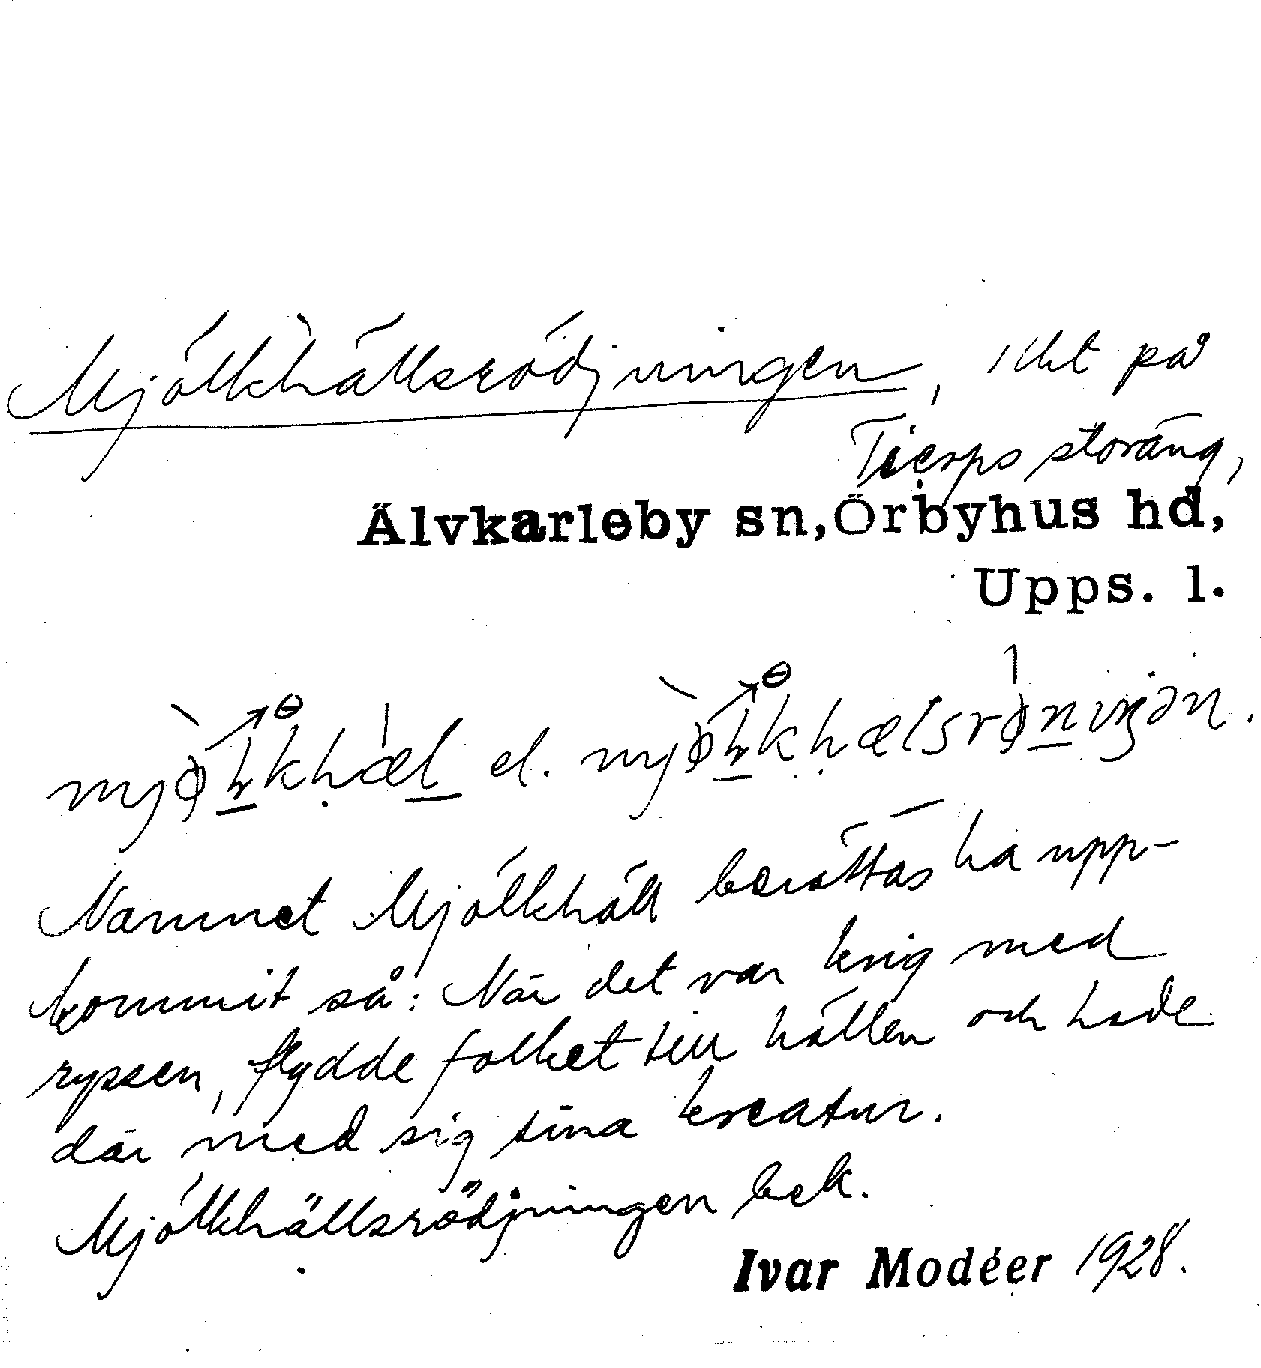 Mjölkhällsrödjningen, i
på
Tierps storäng,
Älvkarleby sn, Örbyhus hd,
Upps. l.
el.
Namnet Mjölkhäll berättas ha upp-
kommit så: När det var krig med
ryssen, flydde folket till hällen och hade
där med sig sina kreatur.
Mjölkhällsrödjningen bek.
Ivar Modéer 1928.